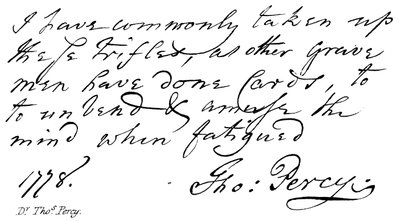 I have commonly taken up
these trifles, as other grave
men have done Cards, to
to unbend & amuse the
mind when fatigued
1778. Tho: Percy.
Dr. Thos. Percy.